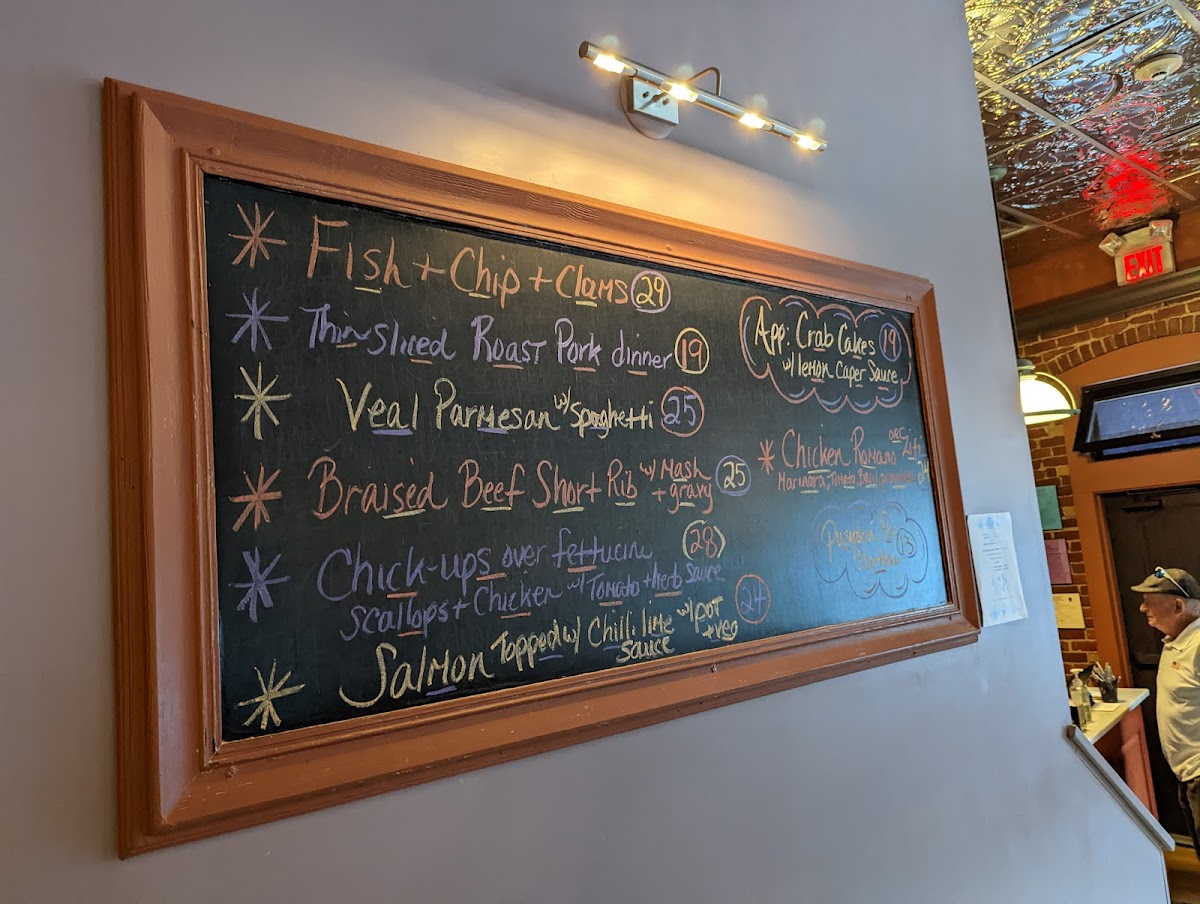 Fish + Chip + Clams 29
Thin Sliced Roast Pork dinner 19
Veal Parmesan w/ Spaghetti 25
Braised Beef Short Rib w/ Mash + gravy 25
Chick-ups over fettucine 28
Scallops + Chicken w/ Tomato + herb Sauce
Salmon Topped w/ Chilli lime Sauce w/ pot + veg 24
App: Crab Cakes 19
w/ lemon Caper Sauce
Chicken Romano Ziti
Marinara, Tomato, Basil
EXIT